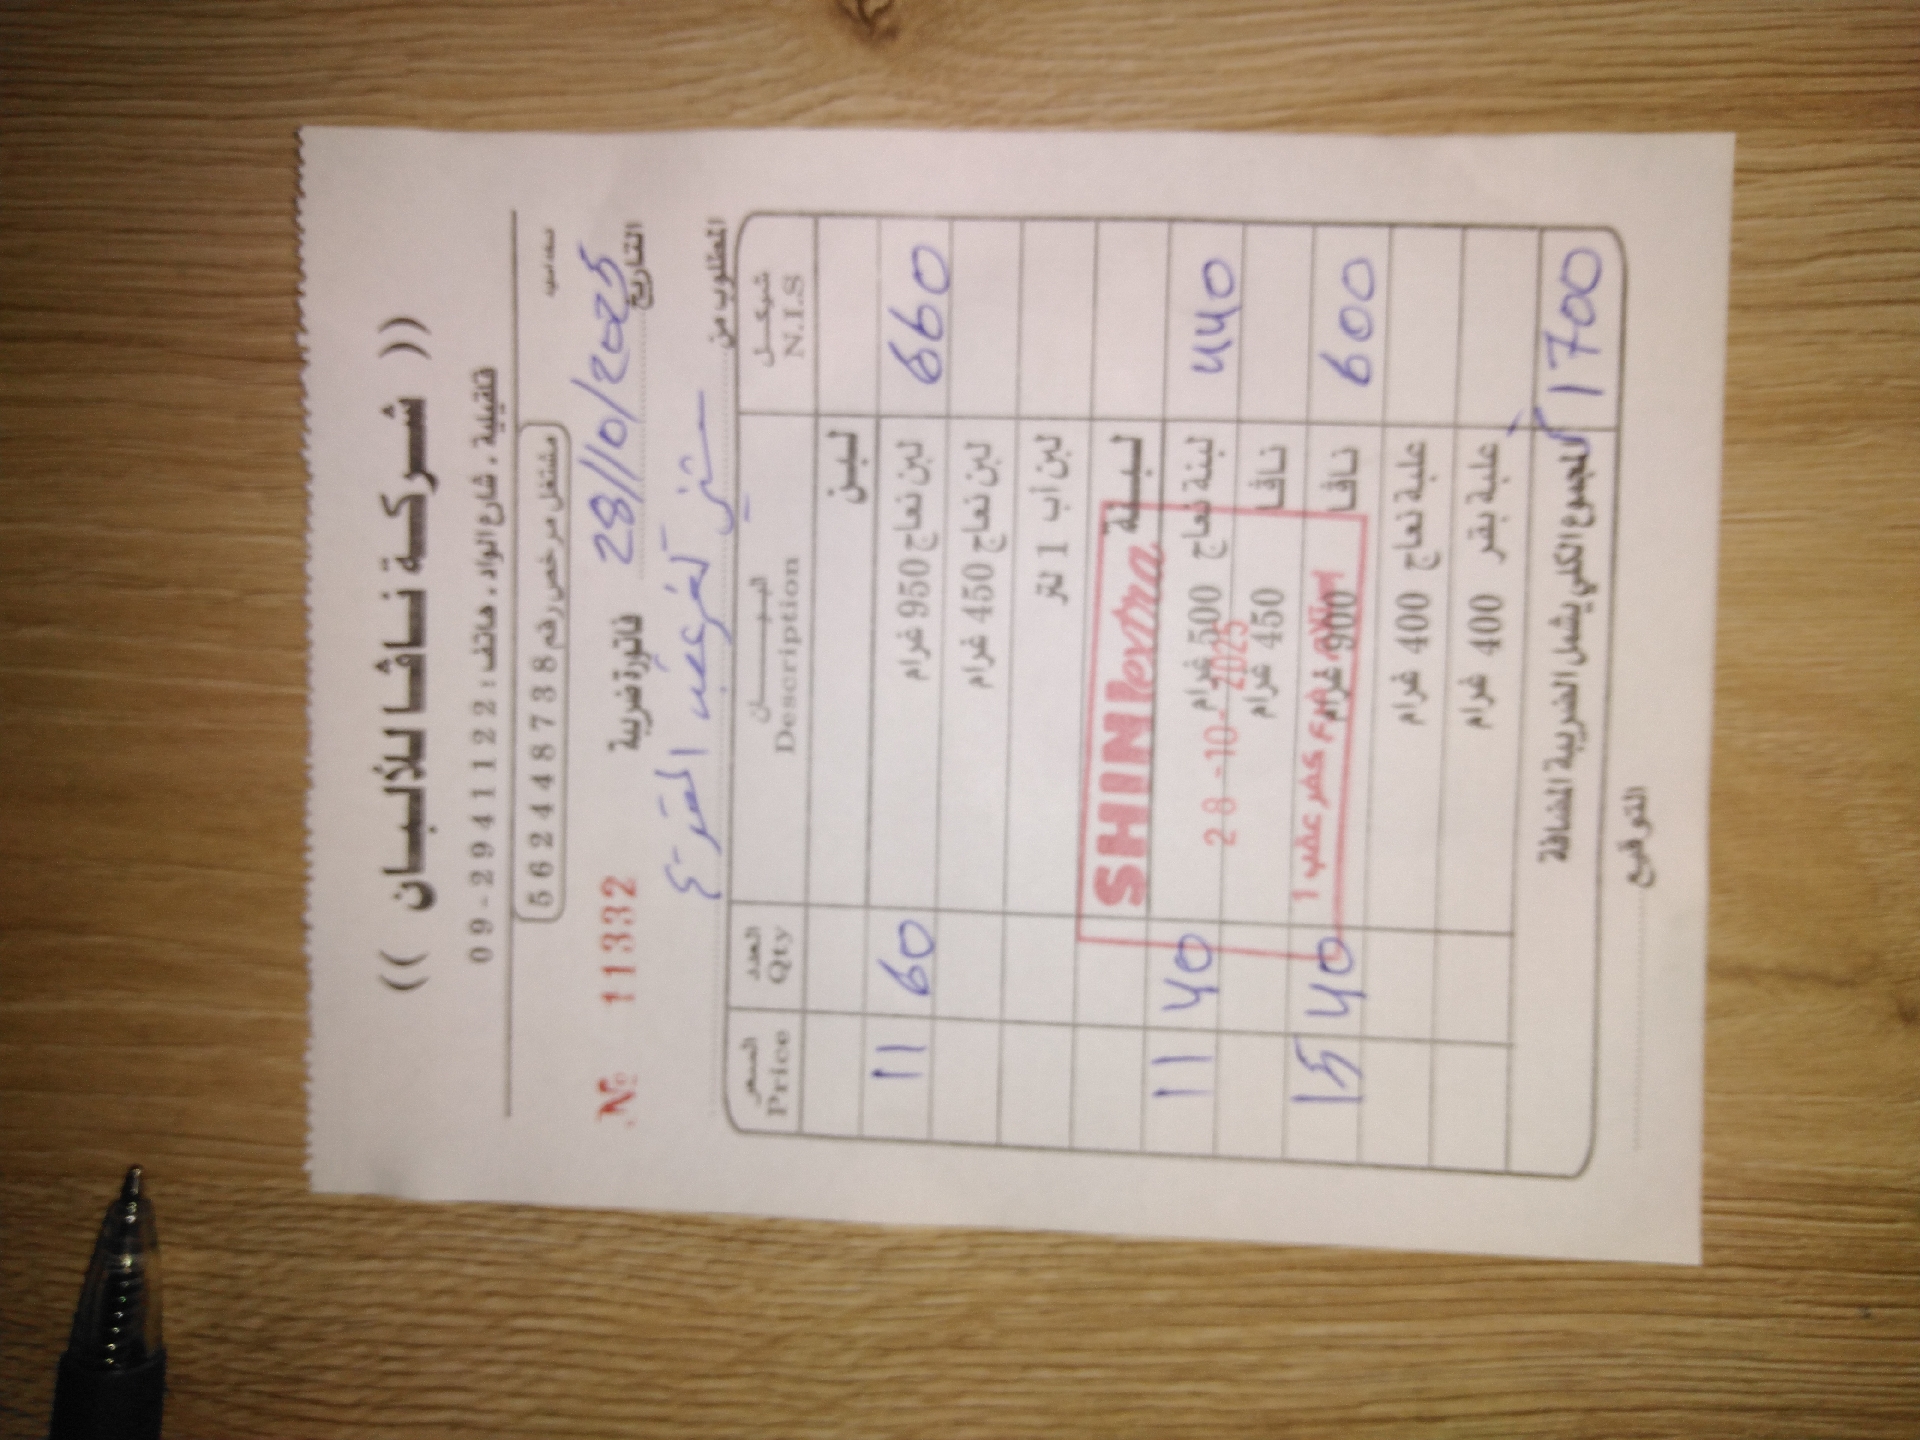 (( شركة نافا للألبان ))
قلقيلية . شارع الواد . هاتف : 2941122-09
مشتغل مرخص رقم 562448738
№ 11332 فاتورة ضريبة 28/10/2025 التاريخ
المطلوب من
السعر العدد البيــــان شيكل
Price Qty Description N.I.S
لبن
11 60 لبن نعاج 950 غرام 660
لبن نعاج 450 غرام
لبن أب 1 لتر
لبنة
SHIN extra
11 40 لبنة نعاج 500 غرام 440
28-10-2025
نافا 450 غرام
15 40 نافا 900 غرام 600
كفر عقب 1
علبة نعاج 400 غرام
علبة بقر 400 غرام
المجموع الكلي يشمل الضريبة المضافة 1700
التوقيع